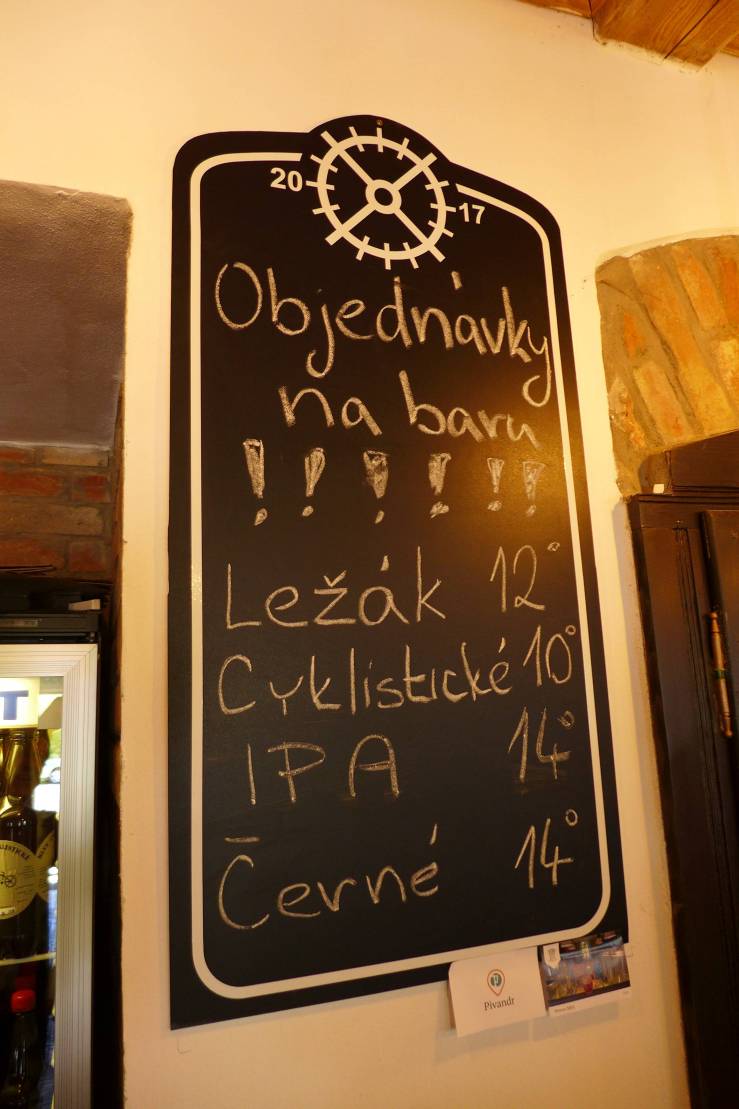 20 17
Objednávky
na baru
! ! ! ! ! !
Ležák 12°
Cyklistické 10°
IPA 14°
Černé 14°
Pivandr